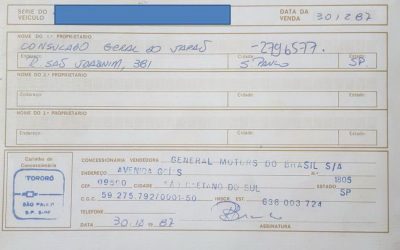 SÉRIE DO VEÍCULO
DATA DA VENDA 30.12.87
NOME DO 1.º PROPRIETÁRIO
CONSULADO GERAL DO JAPÃO - 2796577.
Endereço Cidade Estado
R. SAÕ JOAQUIM, 381 S. PAULO SP
NOME DO 2.º PROPRIETÁRIO
Endereço Cidade Estado
NOME DO 3.º PROPRIETÁRIO
Endereço Cidade Estado
Carimbo da Concessionária
TORORÓ
SÃO PAULO
CONCESSIONÁRIA VENDEDORA GENERAL MOTORS DO BRASIL S/A
ENDEREÇO AVENIDA GOIÁS N.º 1805
CEP 09500 CIDADE SÃO CAETANO DO SUL ESTADO SP
C.G.C. 59.275.792/0001-50 INSCR. EST. 636 003 724
TELEFONE
DATA 30.12.87 ASSINATURA